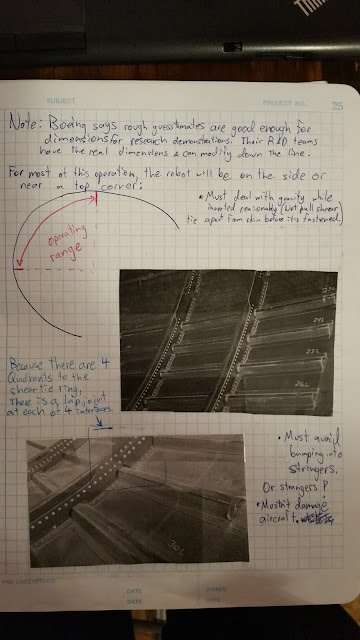 Think
SUBJECT
PROJECT NO.
25
Note: Boeing says rough guesstimates are good enough for
dimensions for research demonstrations. Their R&D teams
have the real dimensions & can modify down the line.
For most of this operation, the robot will be on the side or
near a top corner:
• Must deal with gravity while
inverted reasonably (Not pull shear
tie apart from skin before it is fastened)
operating
range
Because there are 4
Quadrants to the
shear tie ring,
there is a lap joint
at each of 4 interfaces
24L
25L
26L
• Must avoid
bumping into
stringers.
Or strangers?
• Mustn't damage
aircraft.
30L
AND UNDERSTOOD
DATE
SIGNED
DATE
DATE